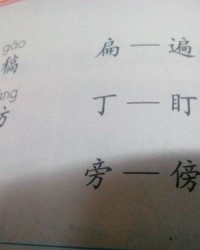 gǎo
稿 扁 — 遍
丁 — 盯
旁 — 傍